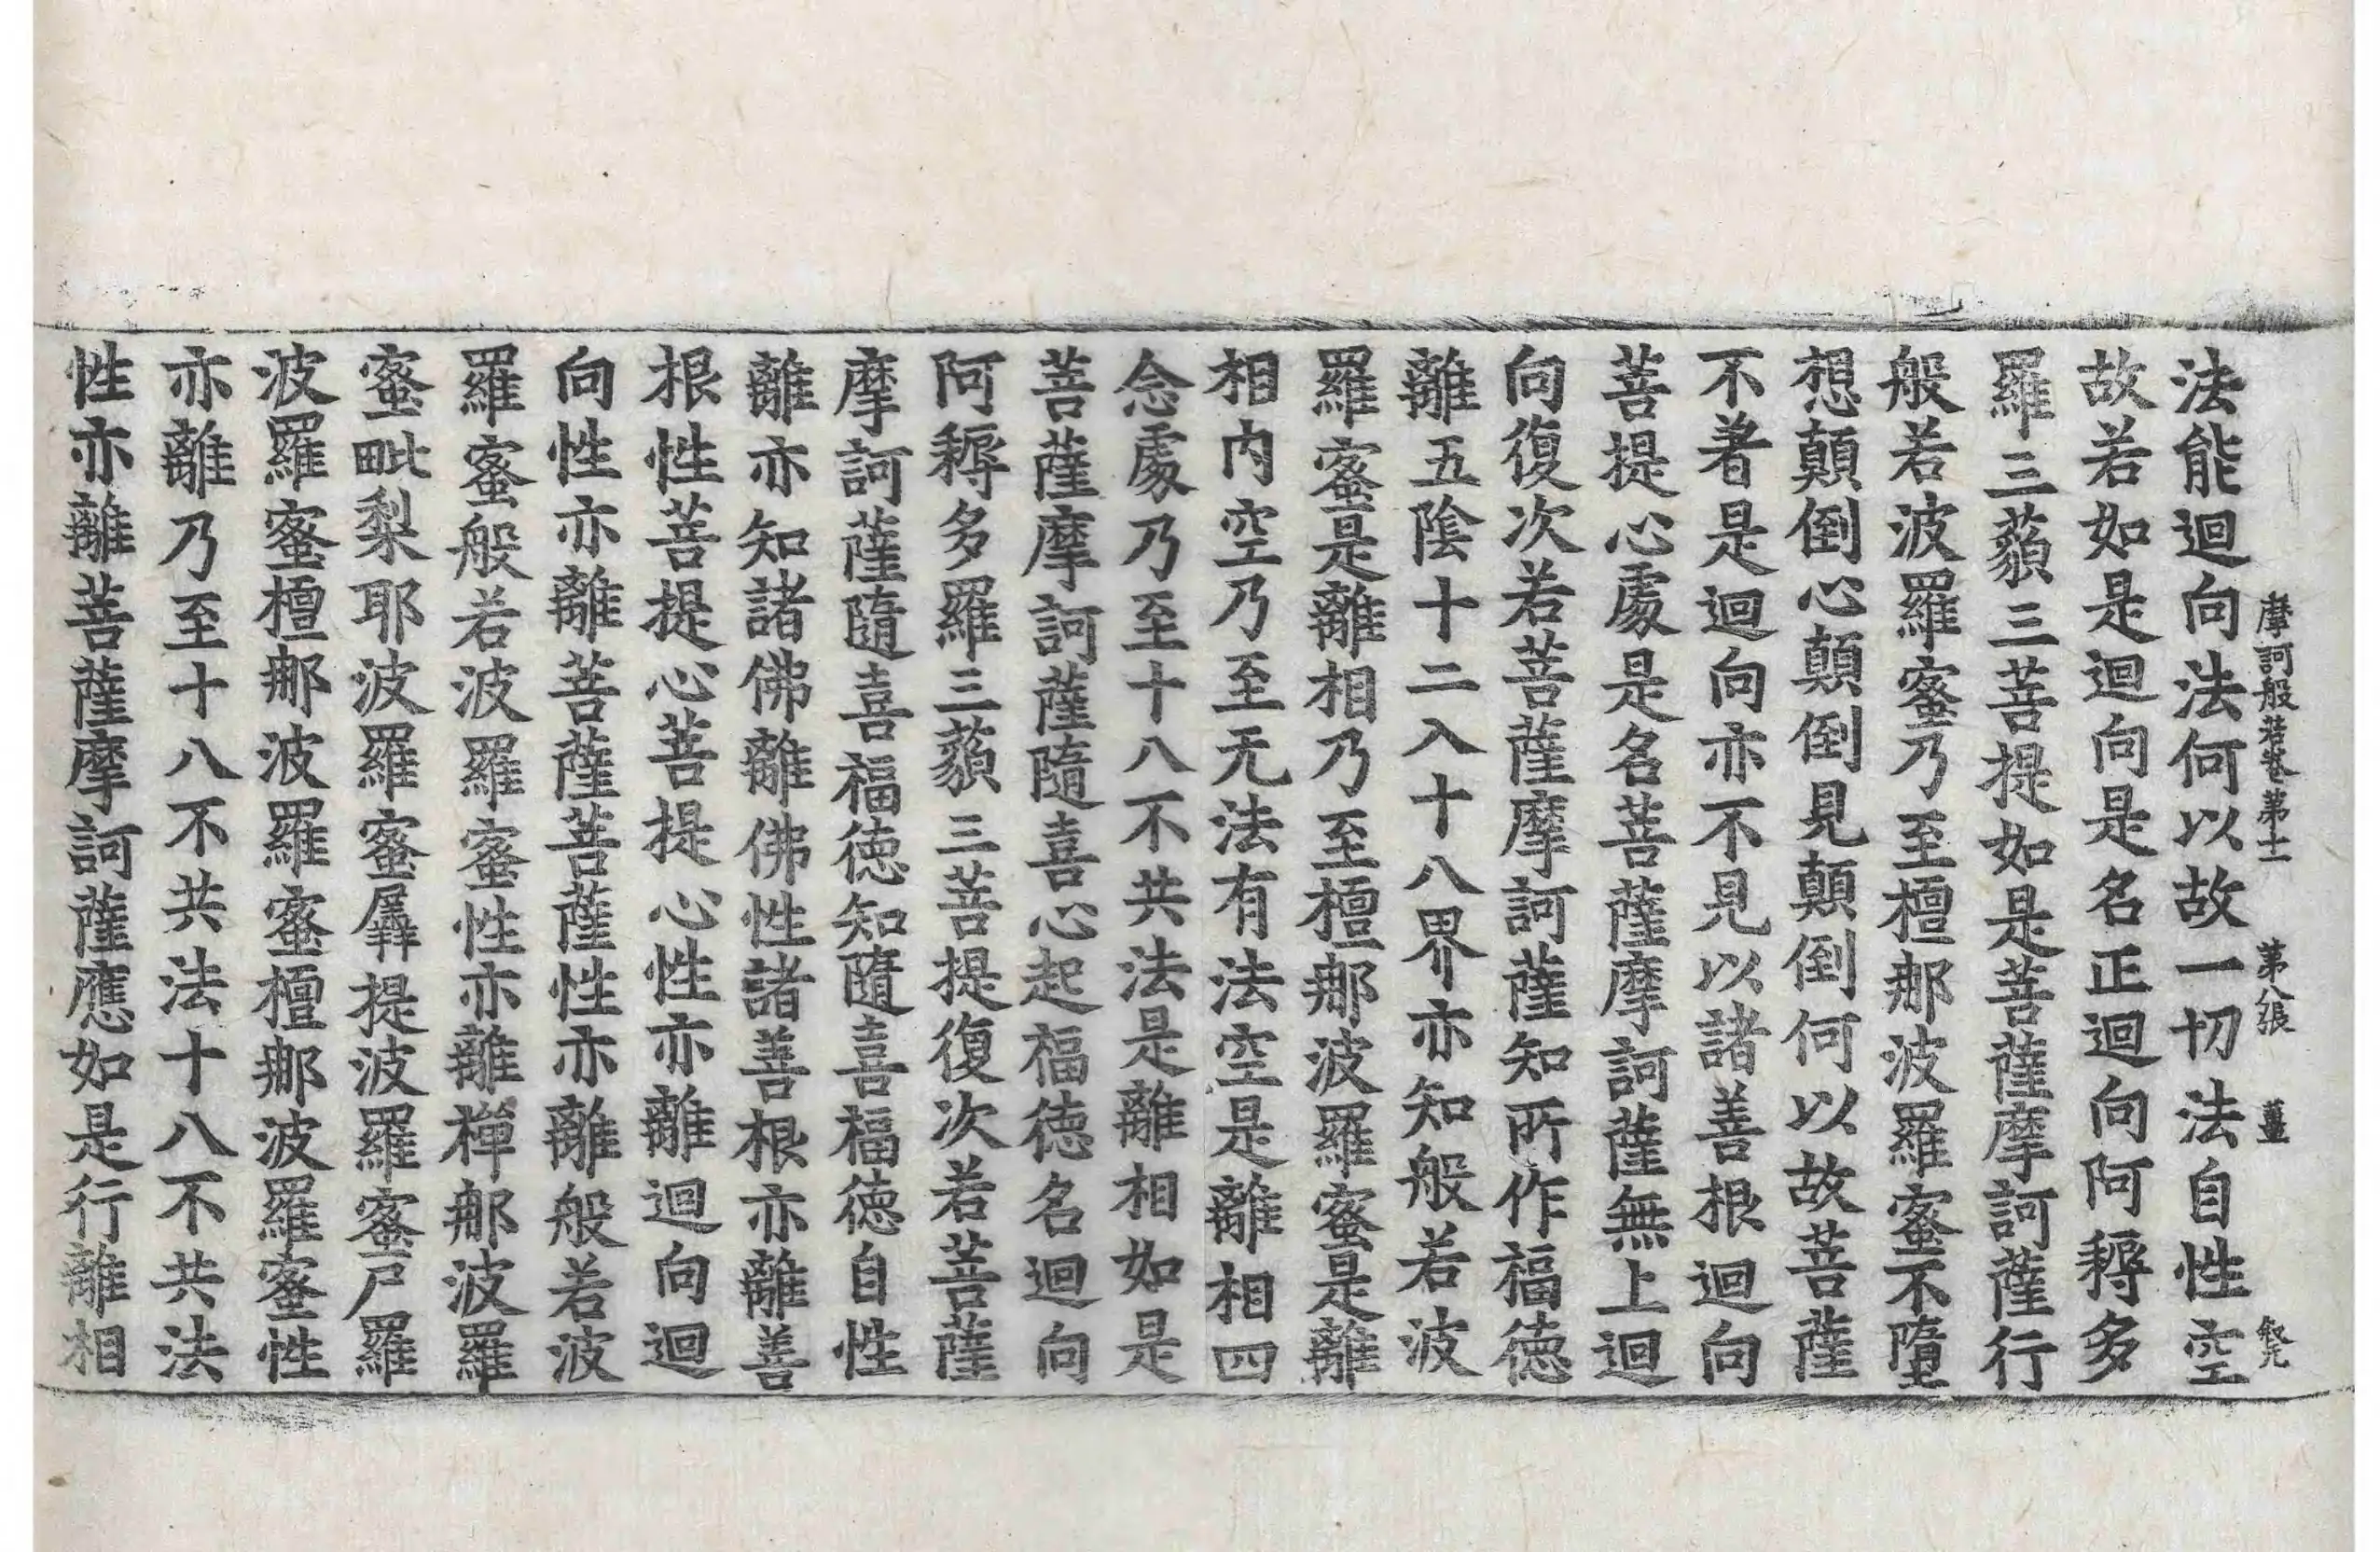 摩訶般若卷第十一 第八張 薑
法能迴向法何以故一切法自性空
故若如是迴向是名正迴向阿耨多
羅三藐三菩提如是菩薩摩訶薩行
般若波羅蜜乃至檀那波羅蜜不墮
想顛倒心顛倒見顛倒何以故菩薩
不著是迴向亦不見以諸善根迴向
菩提心處是名菩薩摩訶薩無上迴
向復次若菩薩摩訶薩知所作福德
離五陰十二入十八界亦知般若波
羅蜜是離相乃至檀那波羅蜜是離
相內空乃至无法有法空是離相四
念處乃至十八不共法是離相如是
菩薩摩訶薩隨喜心起福德名迴向
阿耨多羅三藐三菩提復次若菩薩
摩訶薩隨喜福德知隨喜福德自性
離亦知諸佛離佛性諸善根亦離善
根性菩提心菩提心性亦離迴向迴
向性亦離菩薩菩薩性亦離般若波
羅蜜般若波羅蜜性亦離禪那波羅
蜜毗梨耶波羅蜜羼提波羅蜜尸羅
波羅蜜檀那波羅蜜檀那波羅蜜性
亦離乃至十八不共法十八不共法
性亦離菩薩摩訶薩應如是行離相